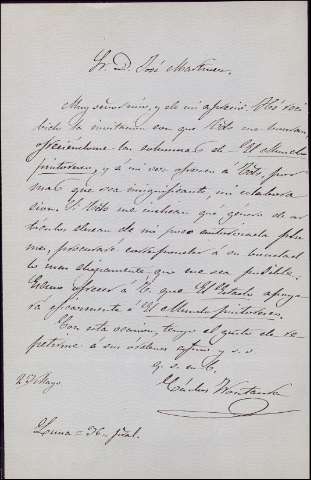 Sr. D. José Martinez.
Muy señor mio, y de mi aprecio: Hé reci
bido la invitacion con que Vds me honran,
ofreciéndome las columnas de El Mundo
pintoresco, y á mi vez ofrezco á Vds, por
mas que sea insignificante, mi colabora
cion. Si Vds me indican qué género de ar
tículos desean de mi poco autorizada plu
ma, procuraré corresponder á su bondad
lo mas dignamente que me sea posible.
ofrecer á V. que El Estado apoya
rá eficazmente á El Mundo pintoresco.
Con esta ocasion, tengo el gusto de re
petirme á sus órdenes afmo y s. s
q. s. m. b.
23 Mayo
Luna = 36 = pral.